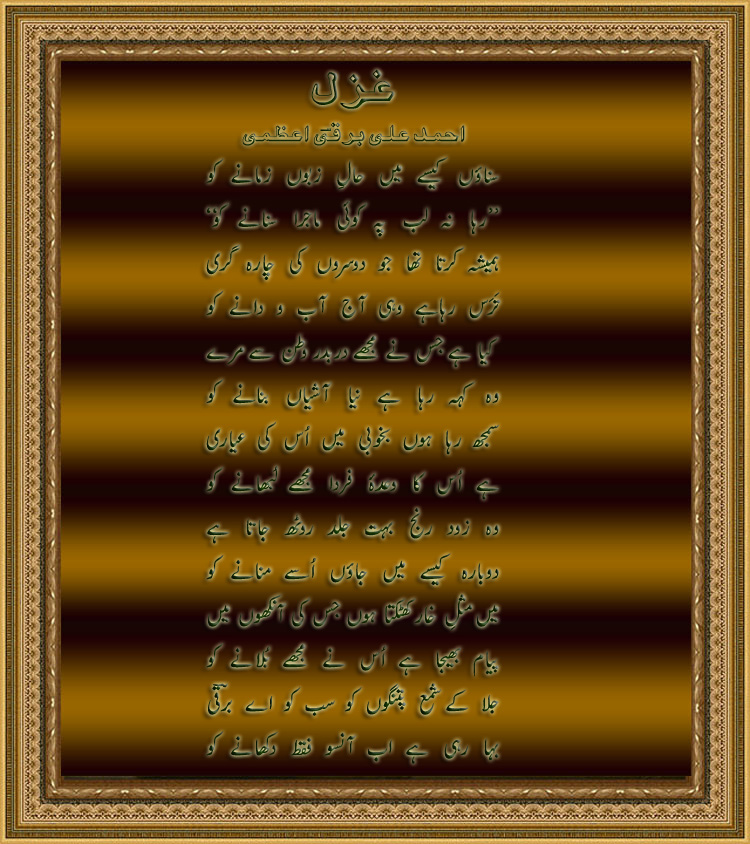 غزل
احمد علی برقی اعظمی
سناؤں کیسے میں حالِ زبوں زمانے کو
’’رہا نہ لب پہ کوئی ماجرا سنانے کو‘‘
ہمیشہ کرتا تھا جو دوسروں کی چارہ گری
ترس رہاہے وہی آج آب و دانے کو
کیا ہے جس نے مجھے دربدر وطن سے مرے
وہ کہہ رہا ہے نیا آشیاں بنانے کو
سمجھ رہا ہوں بخوبی میں اُس کی عیاری
ہے اُس کا وعدۂ فردا مجھے لُبھانے کو
وہ زود رنج بہت جلد روٹھ جاتا ہے
دوبارہ کیسے میں جاؤں اُسے منانے کو
میں مثلِ خار کھٹکتا ہوں جس کی آنکھوں میں
پیام بھیجا ہے اُس نے مجھے بُلانے کو
جلا کے شمع پتنگوں کو سب کو اے برقیؔ
بہا رہی ہے اب آنسو فقط دکھانے کو